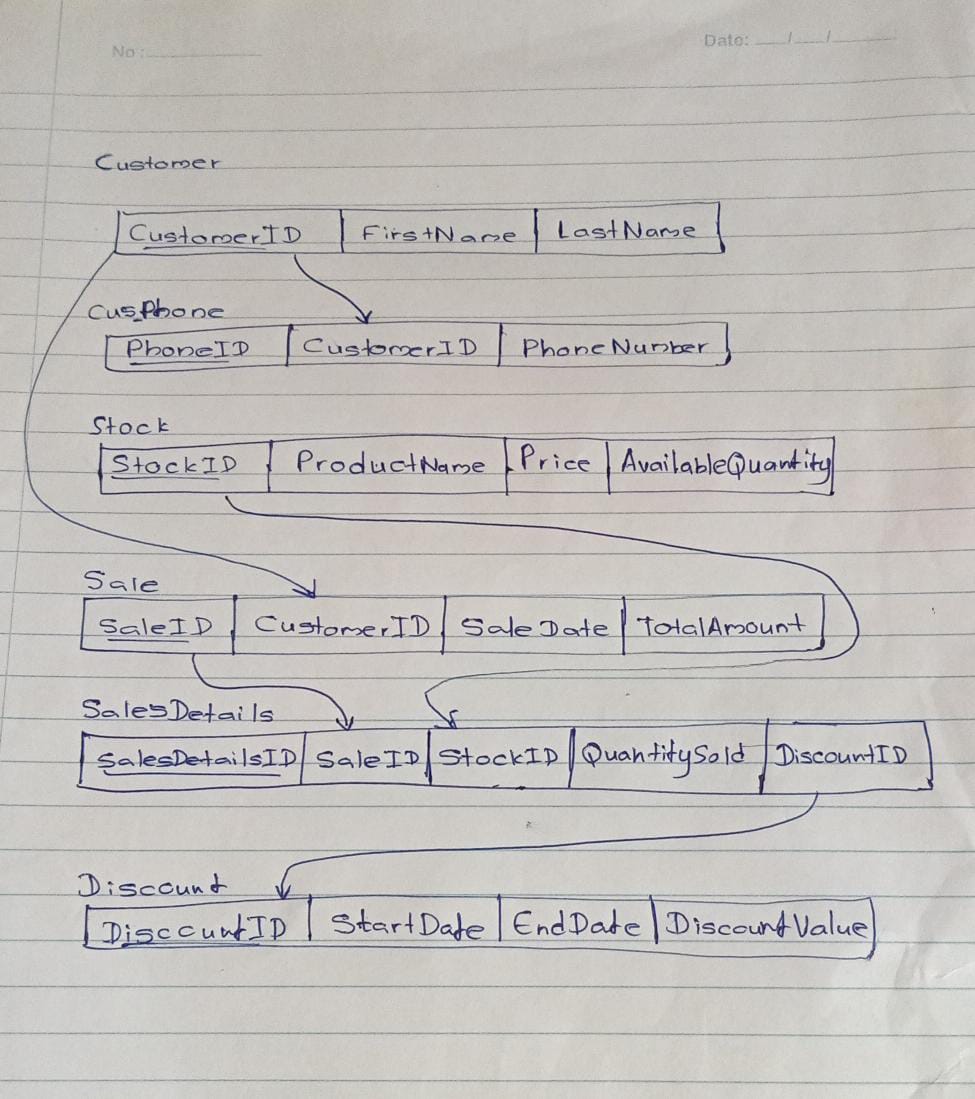 No: Date: __/__/____
Customer
CustomerID FirstName LastName
Cus_Phone
PhoneID CustomerID PhoneNumber
Stock
StockID ProductName Price AvailableQuantity
Sale
SaleID CustomerID SaleDate TotalAmount
SalesDetails
SalesDetailsID SaleID StockID QuantitySold DiscountID
Discount
DiscountID StartDate EndDate DiscountValue